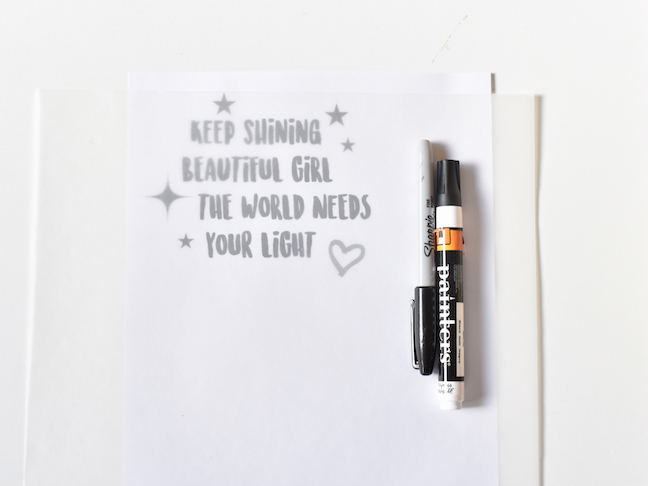 KEEP SHINING
BEAUTIFUL GIRL
THE WORLD NEEDS
YOUR LIGHT
Sharpie
painters